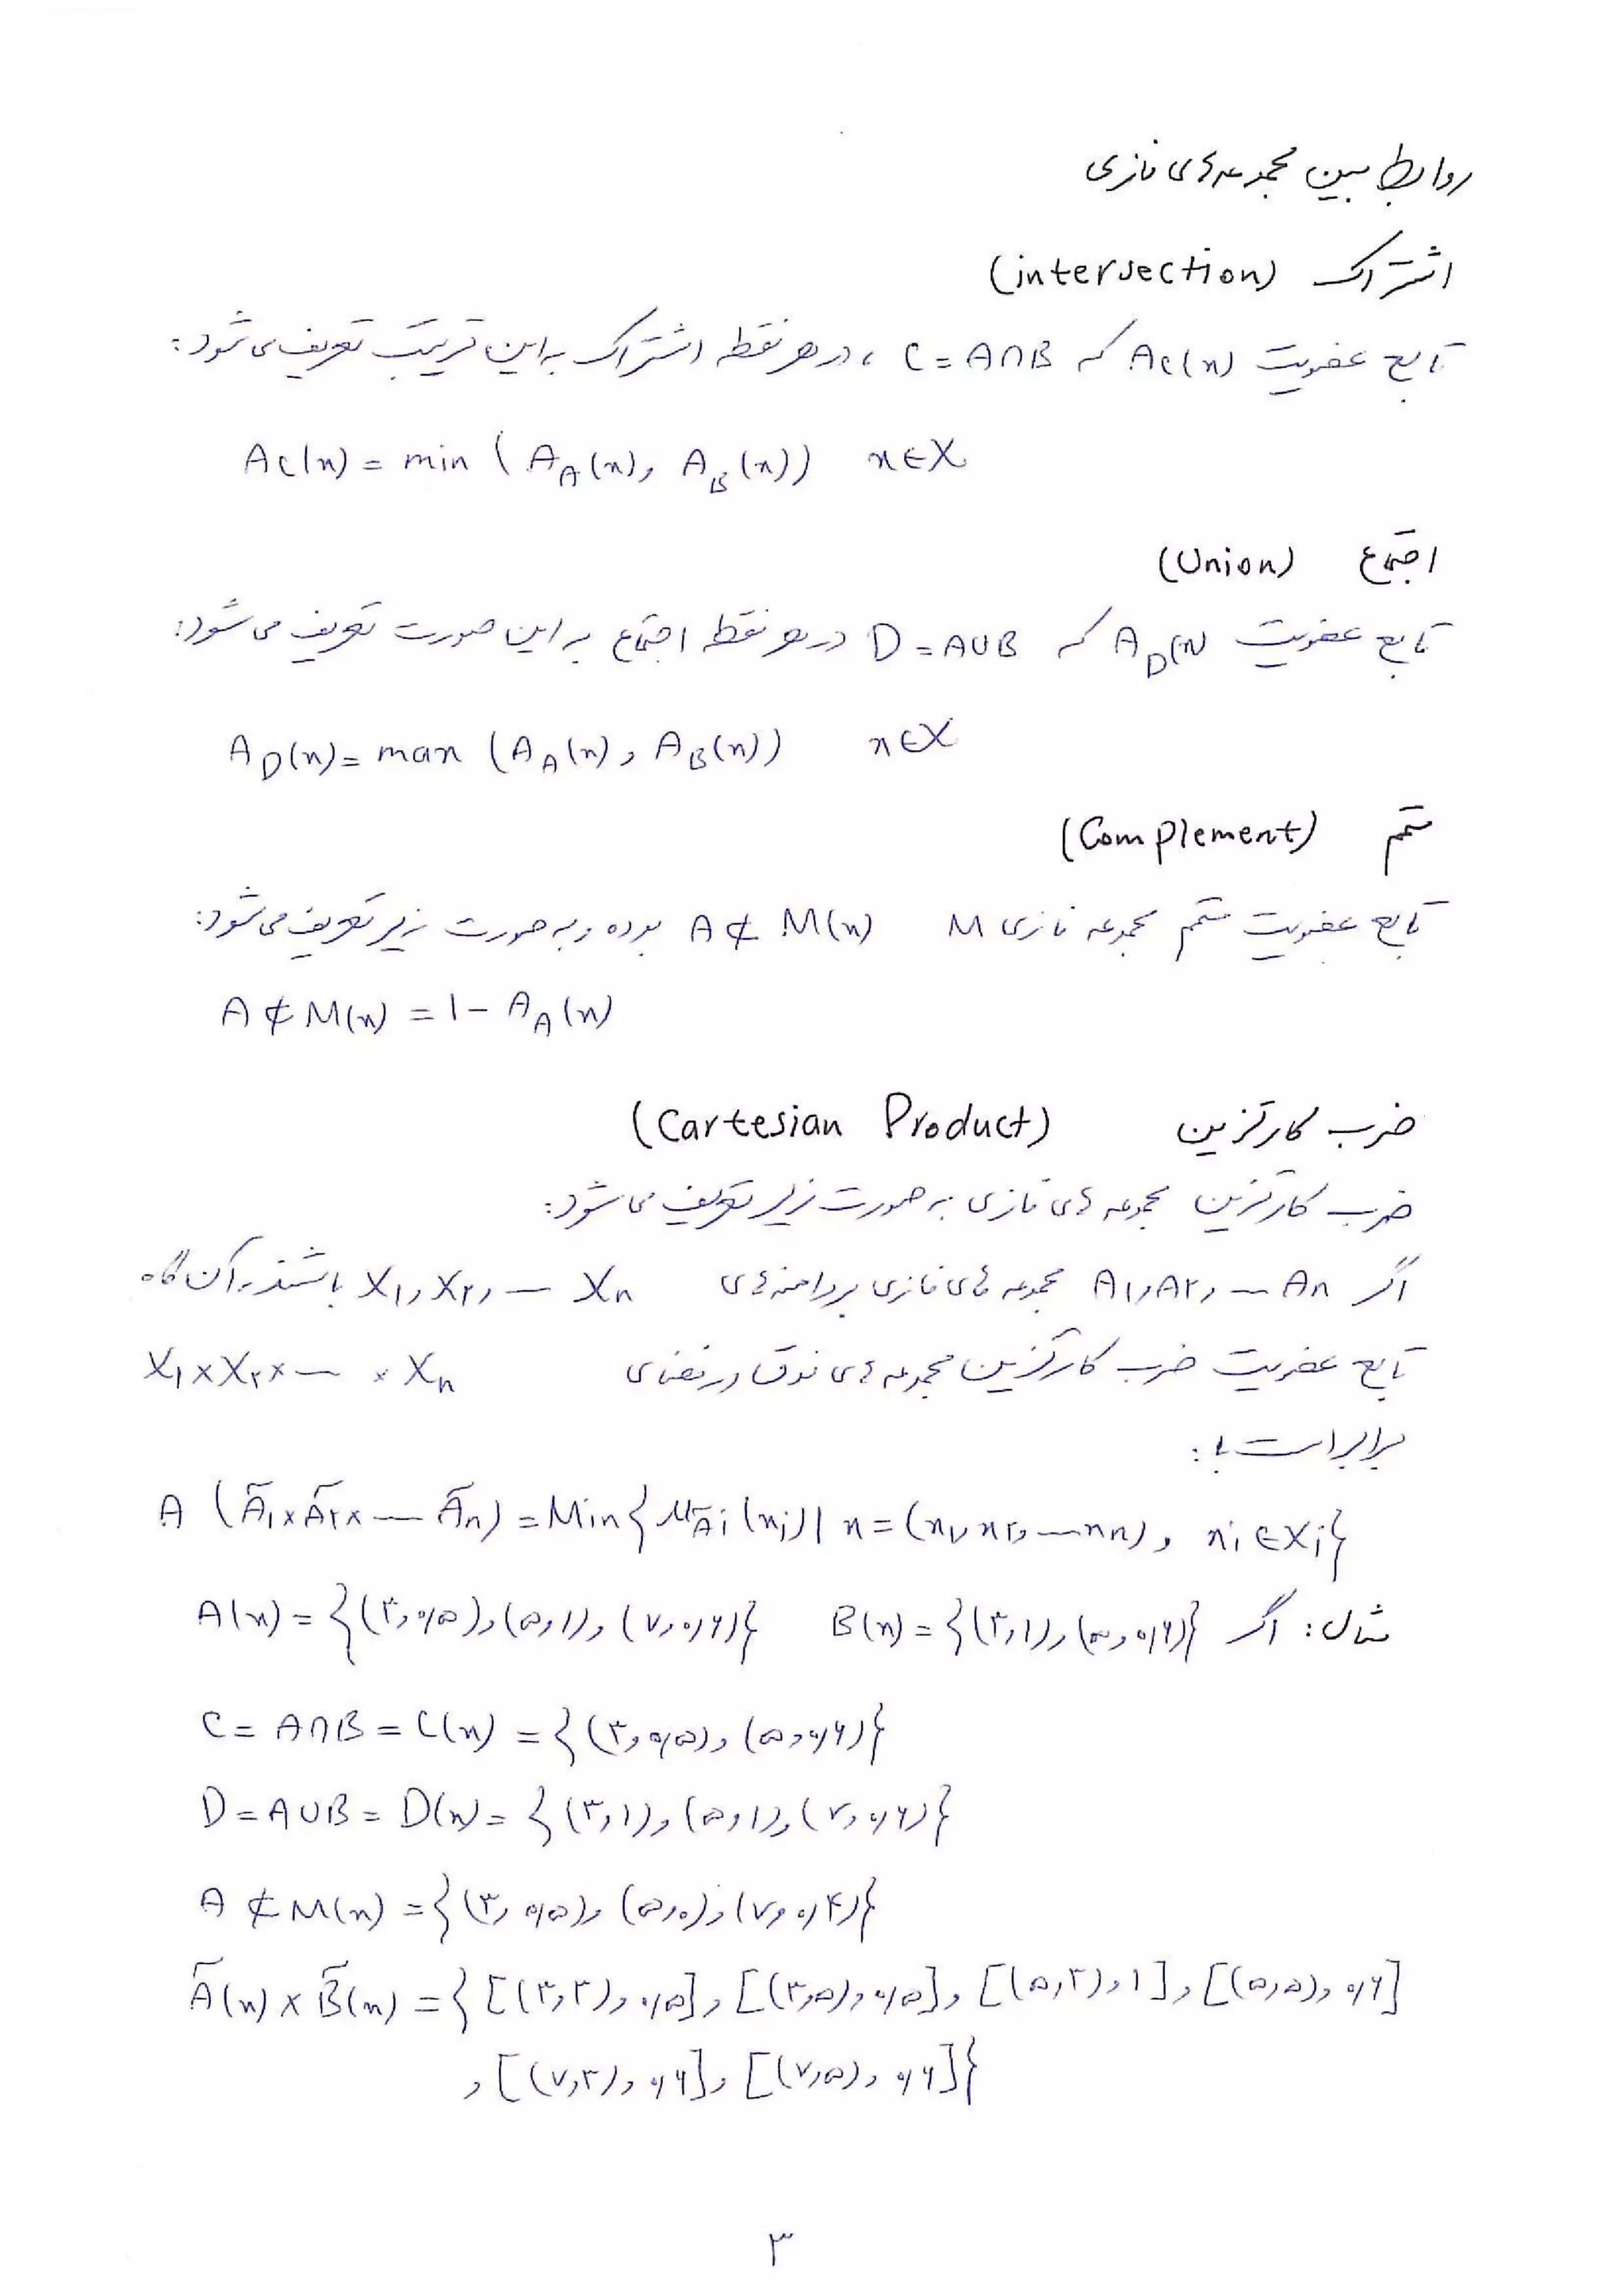 روابط بین مجموعه‌های فازی
اشتراک (intersection)
تابع عضویت Ac(x) که C = A∩B ، در هر نقطه اشتراک به این ترتیب تعریف می‌شود:
Ac(x) = min (A_A(x), A_B(x)) x∈X
اجتماع (Union)
تابع عضویت A_D(x) که D = A∪B در هر نقطه اجتماع به این صورت تعریف می‌شود:
A_D(x) = max (A_A(x), A_B(x)) x∈X
متمم (Complement)
تابع عضویت متمم مجموعه فازی M A ⊄ M(x) بوده و به صورت زیر تعریف می‌شود:
A ⊄ M(x) = 1 - A_A(x)
ضرب کارتزین (Cartesian Product)
ضرب کارتزین مجموعه‌های فازی به صورت زیر تعریف می‌شود:
اگر A۱, A۲, — An مجموعه‌های فازی بر دامنه‌های X۱, X۲, — Xn باشند، آن‌گاه
تابع عضویت ضرب کارتزین مجموعه‌های فوق در فضای X۱×X۲×— × Xn
برابر است با:
A (Ã۱×Ã۲×— Ãn) = Min{ μÃi(xi) | x = (x۱, x۲, — xn), xi ∈ Xi}
مثال: اگر A(x) = {(۳, ۰/۵), (۵, ۱), (۷, ۰/۶)} B(x) = {(۳, ۱), (۵, ۰/۶)}
C = A∩B = C(x) = {(۳, ۰/۵), (۵, ۰/۶)}
D = A∪B = D(x) = {(۳, ۱), (۵, ۱), (۷, ۰/۶)}
A ⊄ M(x) = {(۳, ۰/۵), (۵, ۰), (۷, ۰/۴)}
Ã(x) × B̃(x) = {[(۳, ۳), ۰/۵], [(۳, ۵), ۰/۵], [(۵, ۳), ۱], [(۵, ۵), ۰/۶]
, [(۷, ۳), ۰/۶], [(۷, ۵), ۰/۶]}
۳